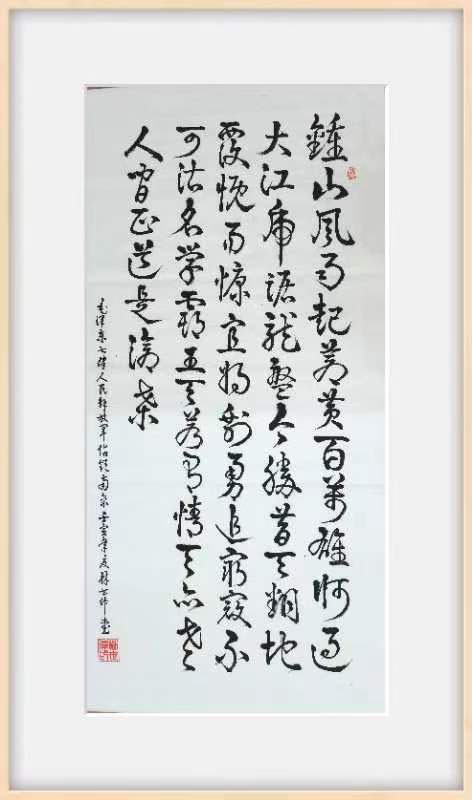 鍾山風雨起蒼黄百萬雄師過
大江虎踞龍盤今勝昔天翻地
覆慨而慷宜將剩勇追窮寇不
可沽名学霸王天若有情天亦老
人間正道是滄桑
毛泽东七律人民解放军佔领南京壬寅年夏